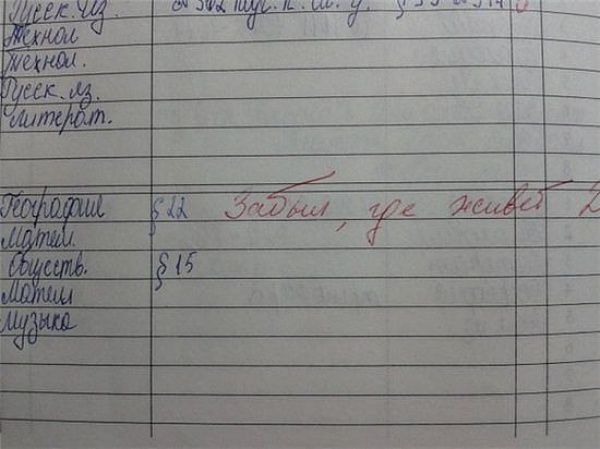 Русск. яз.
Технол
Технол.
Русск. яз.
Литерат.
География § 22 Забыл, где живёт 2
Матем.
Обществ. § 15
Матем
Музыка